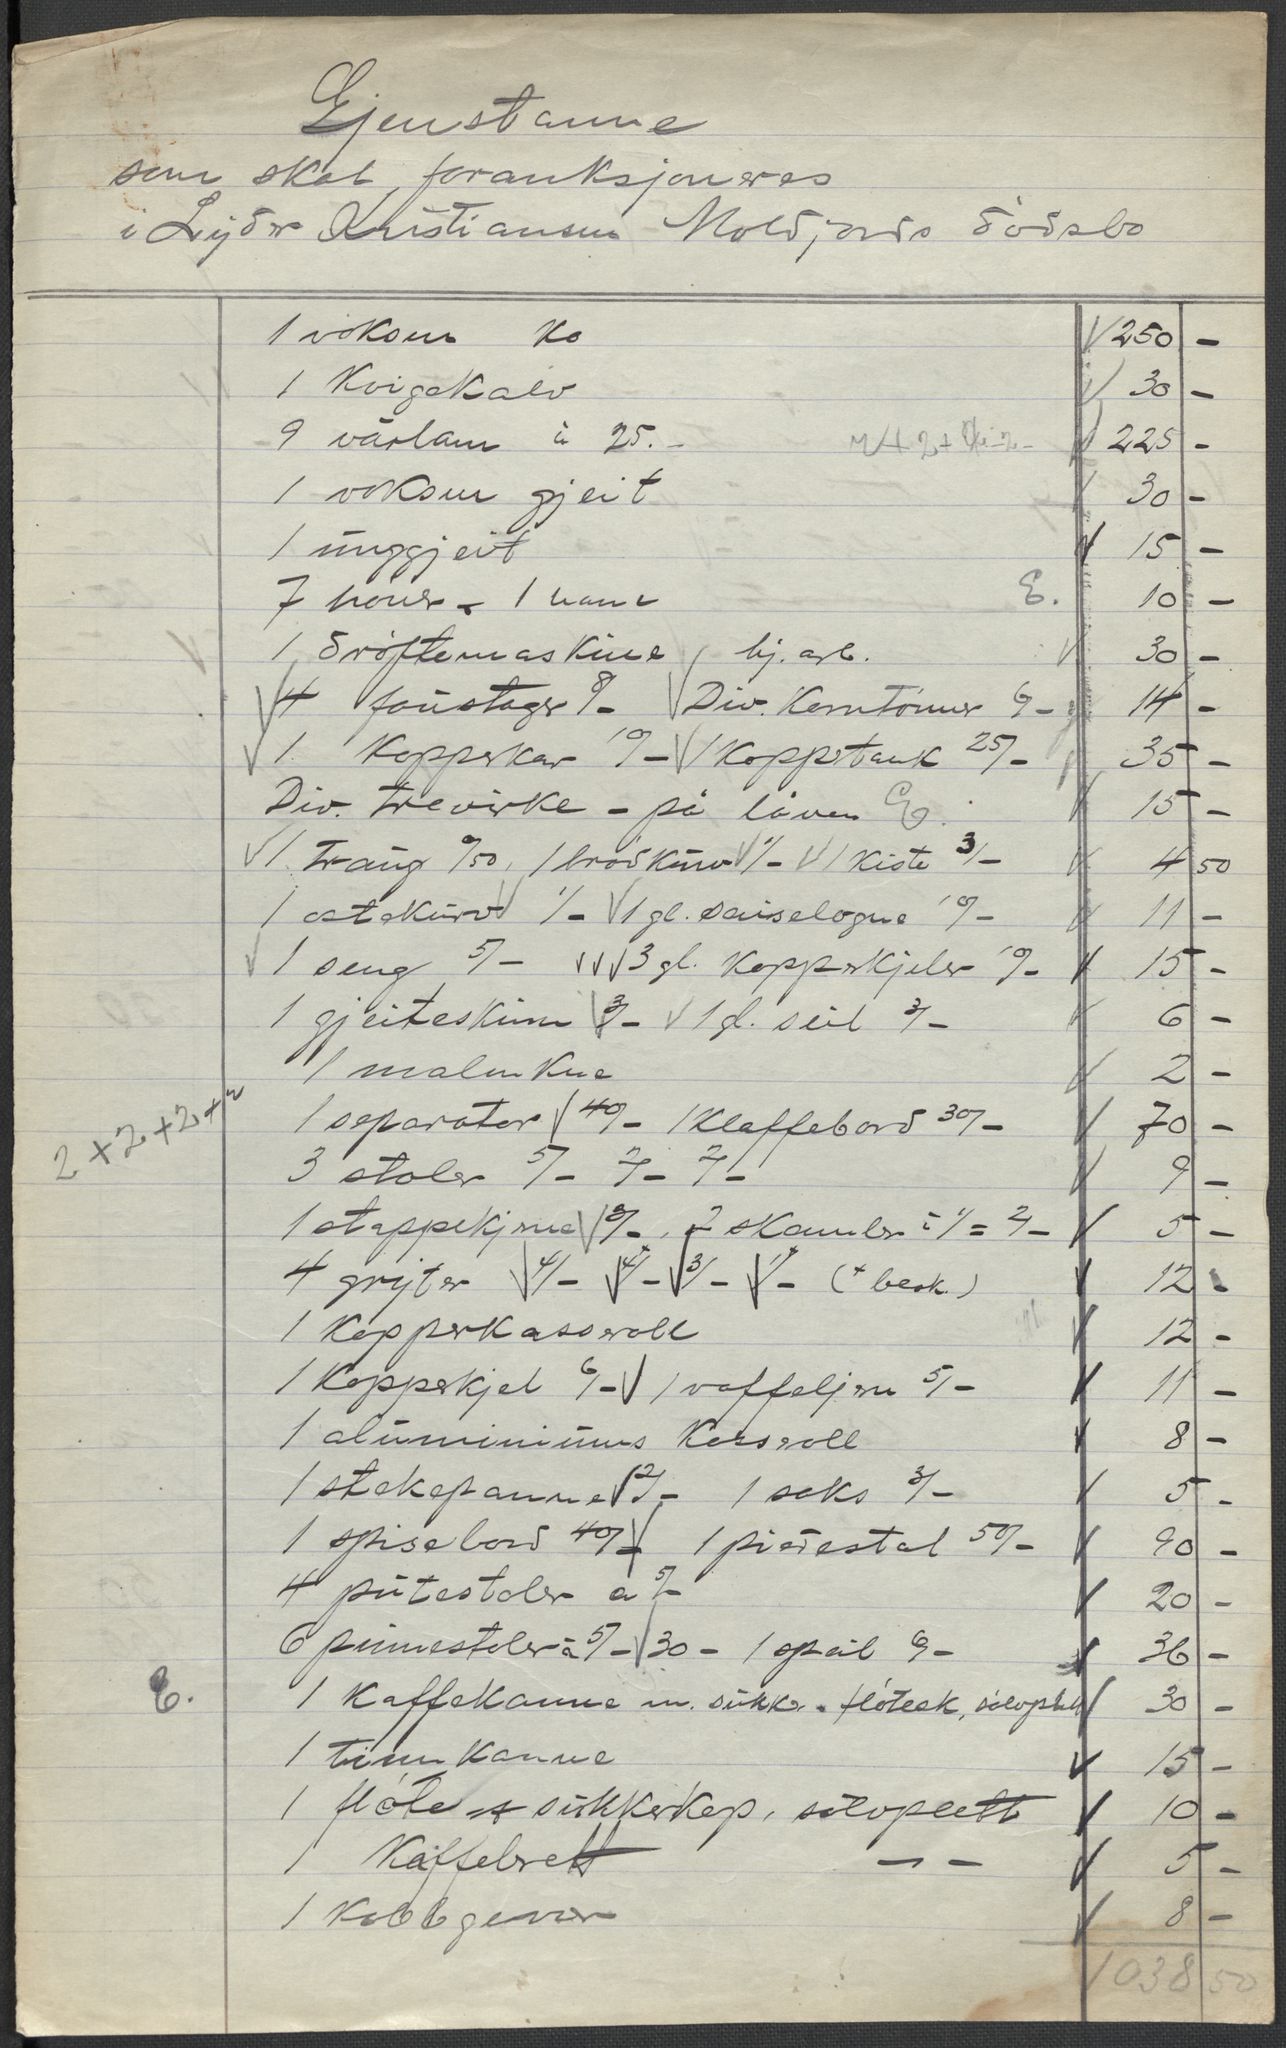 Gjenstanne
som skal forauksjoneres
i Lyder Kristiansen Moldjords dödsbo
1 voksen ko √ 250 -
1 Kvigekalv √ 30 -
9 vårlam à 25.- √ 225 -
1 voksen gjeit 30 -
1 unggjeit √ 15 -
7 höner - 1 hane E. 10 -
1 dröftemaskine, hj. arb. √ 30 -
√ 4 foustager 8/- √ Div. Korntönner 6/- 14 -
√ 1 Kopperkar 10/- √ 1 Koppertank 25/- √ 35 -
Div. trevirke - på låven E. √ 15 -
√ 1 traug 0/50, 1 brödkurv √ 1/- √ 1 Kiste 3/- √ 4 50
1 ostekurv √ 1/- √ 1 gl. 10/- √ 11 -
√ 1 seng 5/- √√√ 3 gl. Kopperkjeler 10/- √ 15 -
1 gjeiteskinn √ 3/- √ 1 gl. seil 3/- √ 6 -
1 √ 2 -
2+2+2+2
1 separator √ 40/- 1 Klaffebord 30/- √ 70 -
3 stoler 5/- 2/- 2/- √ 9 -
1 stappekjerne √ 3/-, 2 skamler à 1/- = 2/- √ 5 -
4 gryter √ 4/- √ 4/- √ 3/- √ 1/- (+ besk.) √ 12 -
1 Kopperkasseroll √ 12 -
1 Kopperkjel 6/- √ 1 vaffeljern 5/- √ 11 -
1 aluminiums Kasseroll √ 8 -
1 stekepanne √ 2/- 1 saks 3/- √ 5 -
1 spisebord 40/- √ 1 piedestal 50/- √ 90 -
4 putestoler a 5/- √ 20 -
6 pinnestoler à 5/- √ 30 - 1 speil 6/- √ 36 -
E. 1 Kaffekanne m. sukker - flötek, sölvplett √ 30 -
1 tinnkanne √ 15 -
1 flöte & sukkerkop, sölvplett √ 10 -
1 Kaffebrett - - √ 5 -
1 Kobbgever √ 8 -
1038 50